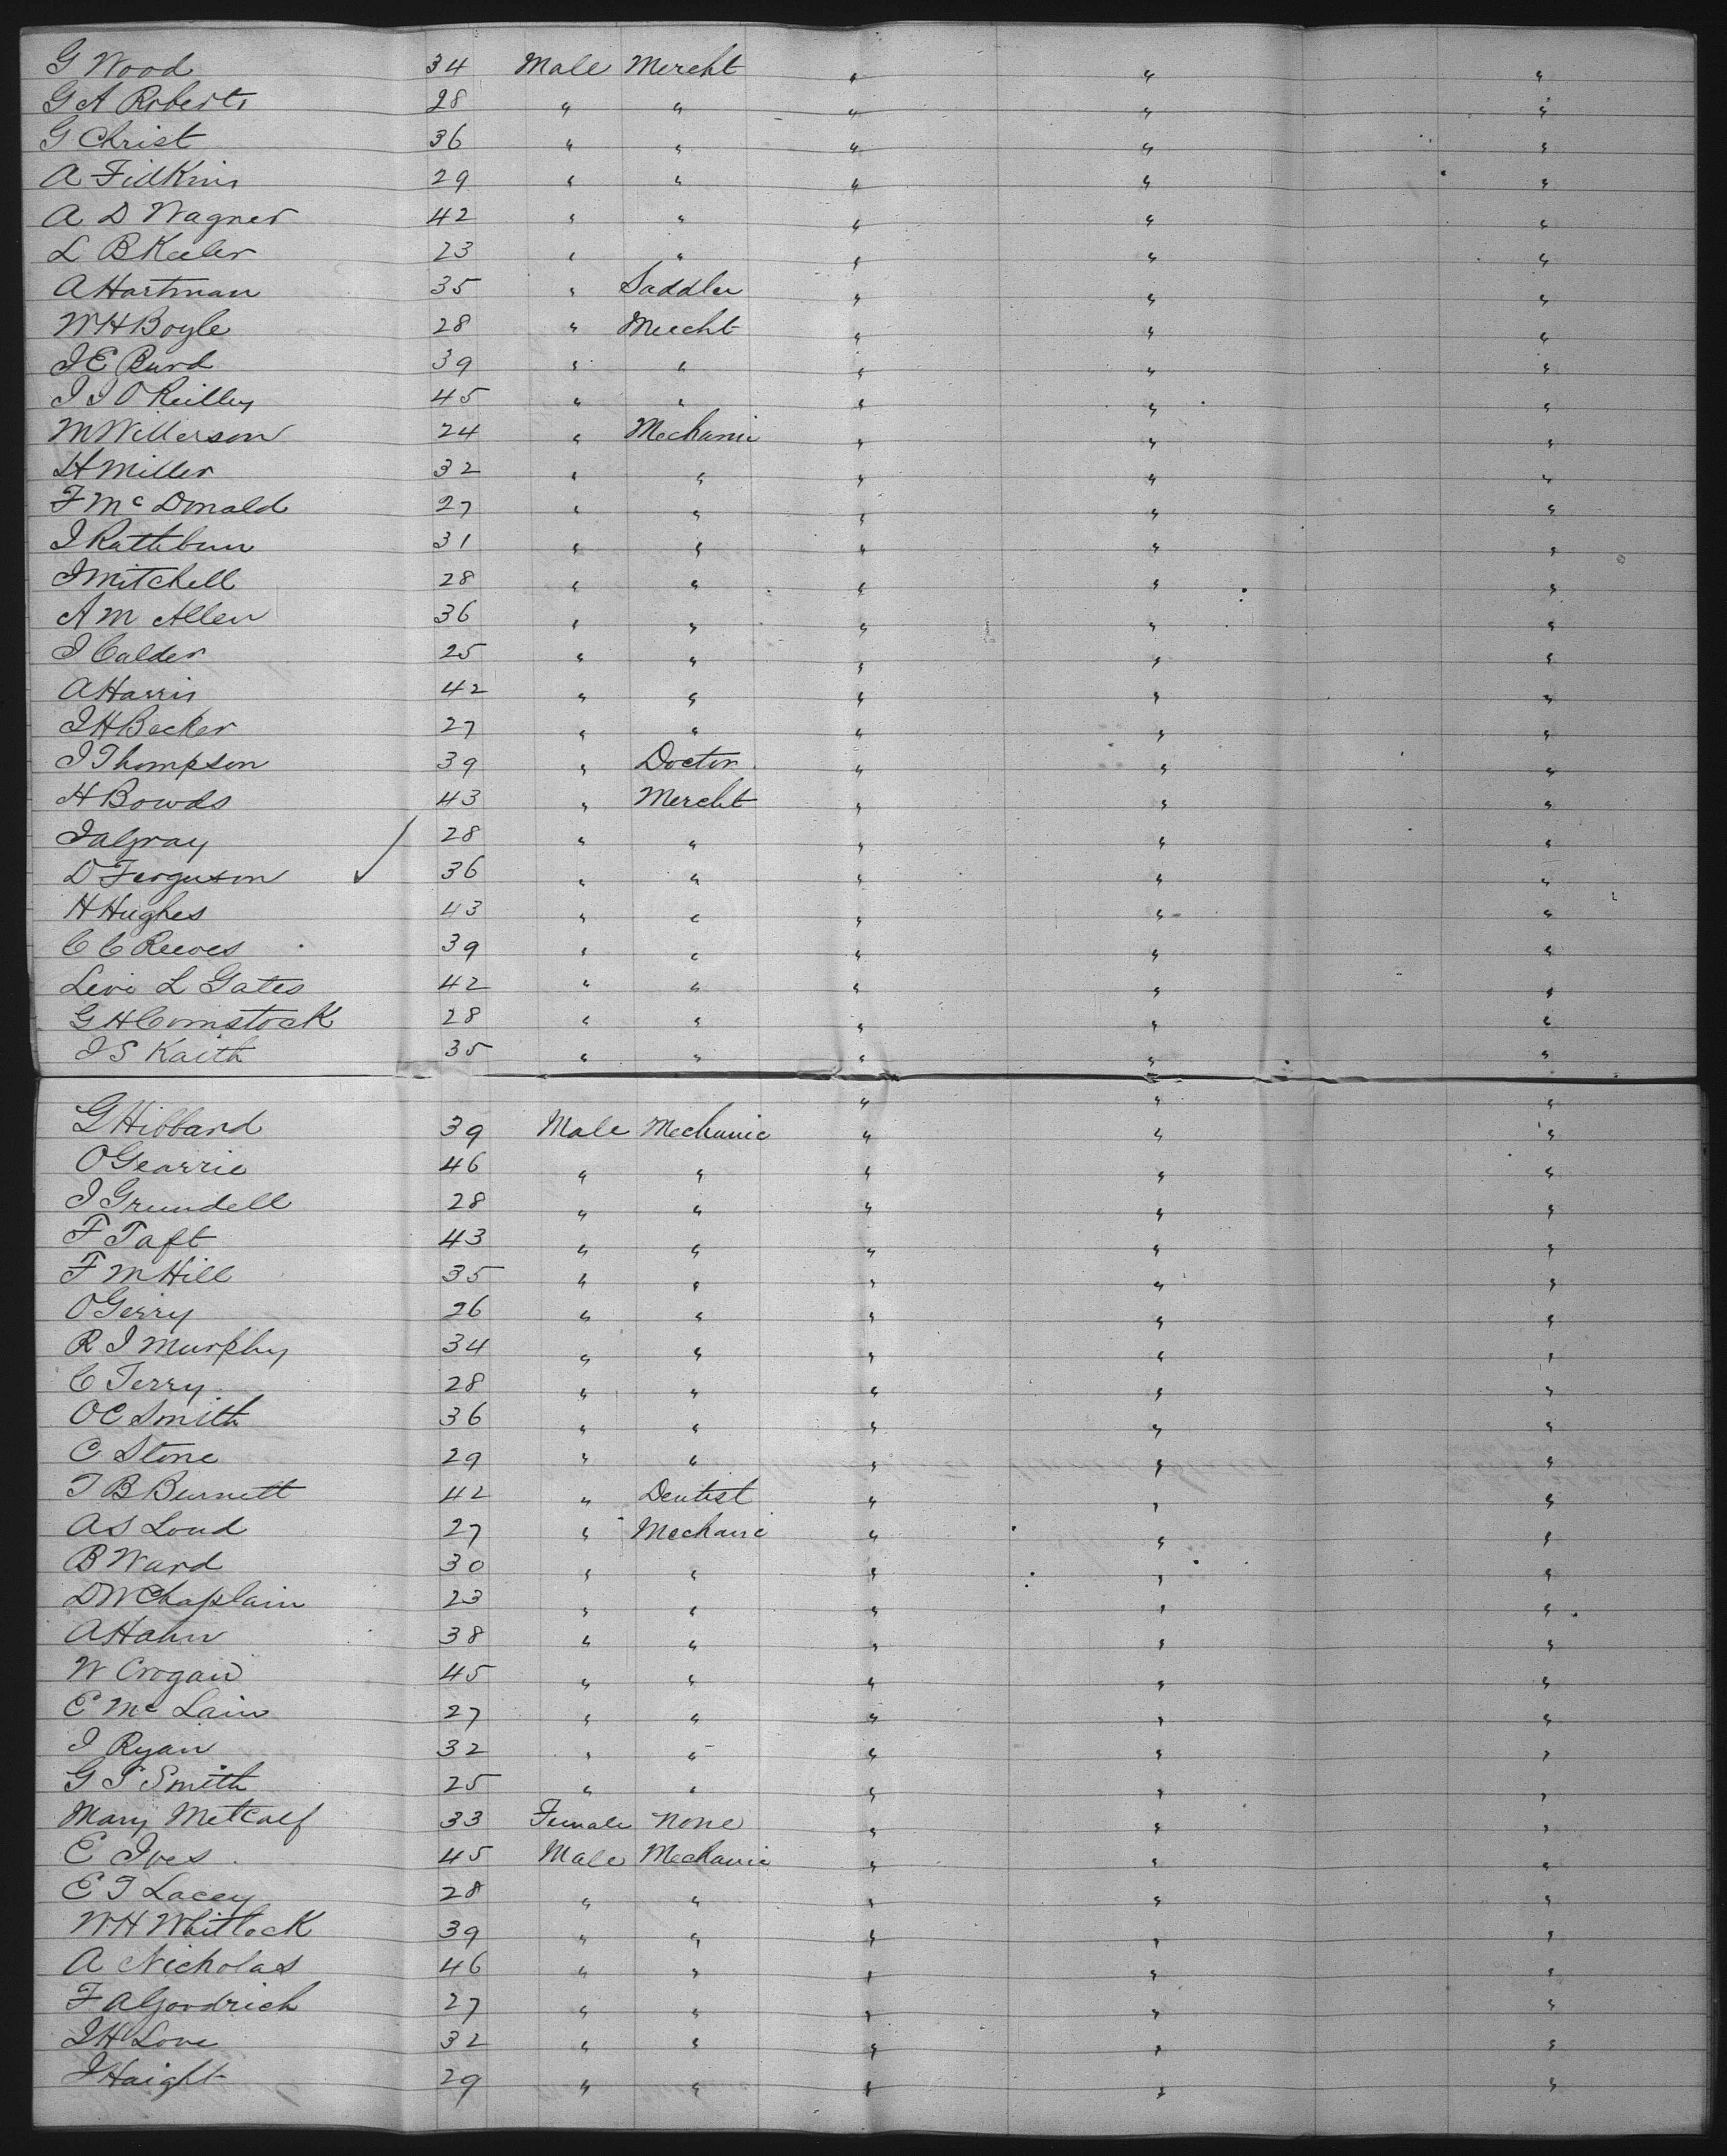 G Wood 34 Male Mercht " " "
G A Roberts 28 " " " " "
G Christ 36 " " " " "
A Fidkins 29 " " " " "
A D Wagner 42 " " " " "
L B Keeler 23 " " " " "
A Hartman 35 " Saddler " " "
W H Boyle 28 " Mercht " " "
J E Burd 39 " " " " "
J J O Reilley 45 " " " " "
M Willerson 24 " Mechanic " " "
H Miller 32 " " " " "
F Mc Donald 27 " " " " "
J Rathbun 31 " " " " "
J Mitchell 28 " " " " "
A M Allen 36 " " " " "
J Calder 25 " " " " "
A Harris 42 " " " " "
J H Becker 27 " " " " "
J Thompson 39 " Doctor " " "
H Bowds 43 " Mercht " " "
J A Gray 28 " " " " "
D Ferguson ✓ 36 " " " " "
H Hughes 43 " " " " "
C C Reeves 39 " " " " "
Levi L Gates 42 " " " " "
G H Comstock 28 " " " " "
J S Kaith 35 " " " " "
" " "
G Hibbard 39 Male Mechanic " " "
O Gearrie 46 " " " " "
J Grundell 28 " " " " "
F Taft 43 " " " " "
F M Hill 35 " " " " "
O Gerry 26 " " " " "
R J Murphy 34 " " " " "
C Terry 28 " " " " "
O C Smith 36 " " " " "
C Stone 29 " " " " "
T B Burnett 42 " Dentist " " "
A S Loud 27 " Mechanic " " "
B Ward 30 " " " " "
D W Chaplain 23 " " " " "
A Hahn 38 " " " " "
W Crogan 45 " " " " "
E Mc Lain 27 " " " " "
J Ryan 32 " " " " "
G T Smith 25 " " " " "
Mary Metcalf 33 Female None " " "
E Ives 45 Male Mechanic " " "
E T Lacey 28 " " " " "
W H Whitlock 39 " " " " "
A Nicholas 46 " " " " "
F A Goodrich 27 " " " " "
J H Love 32 " " " " "
J Haight 29 " " " " "